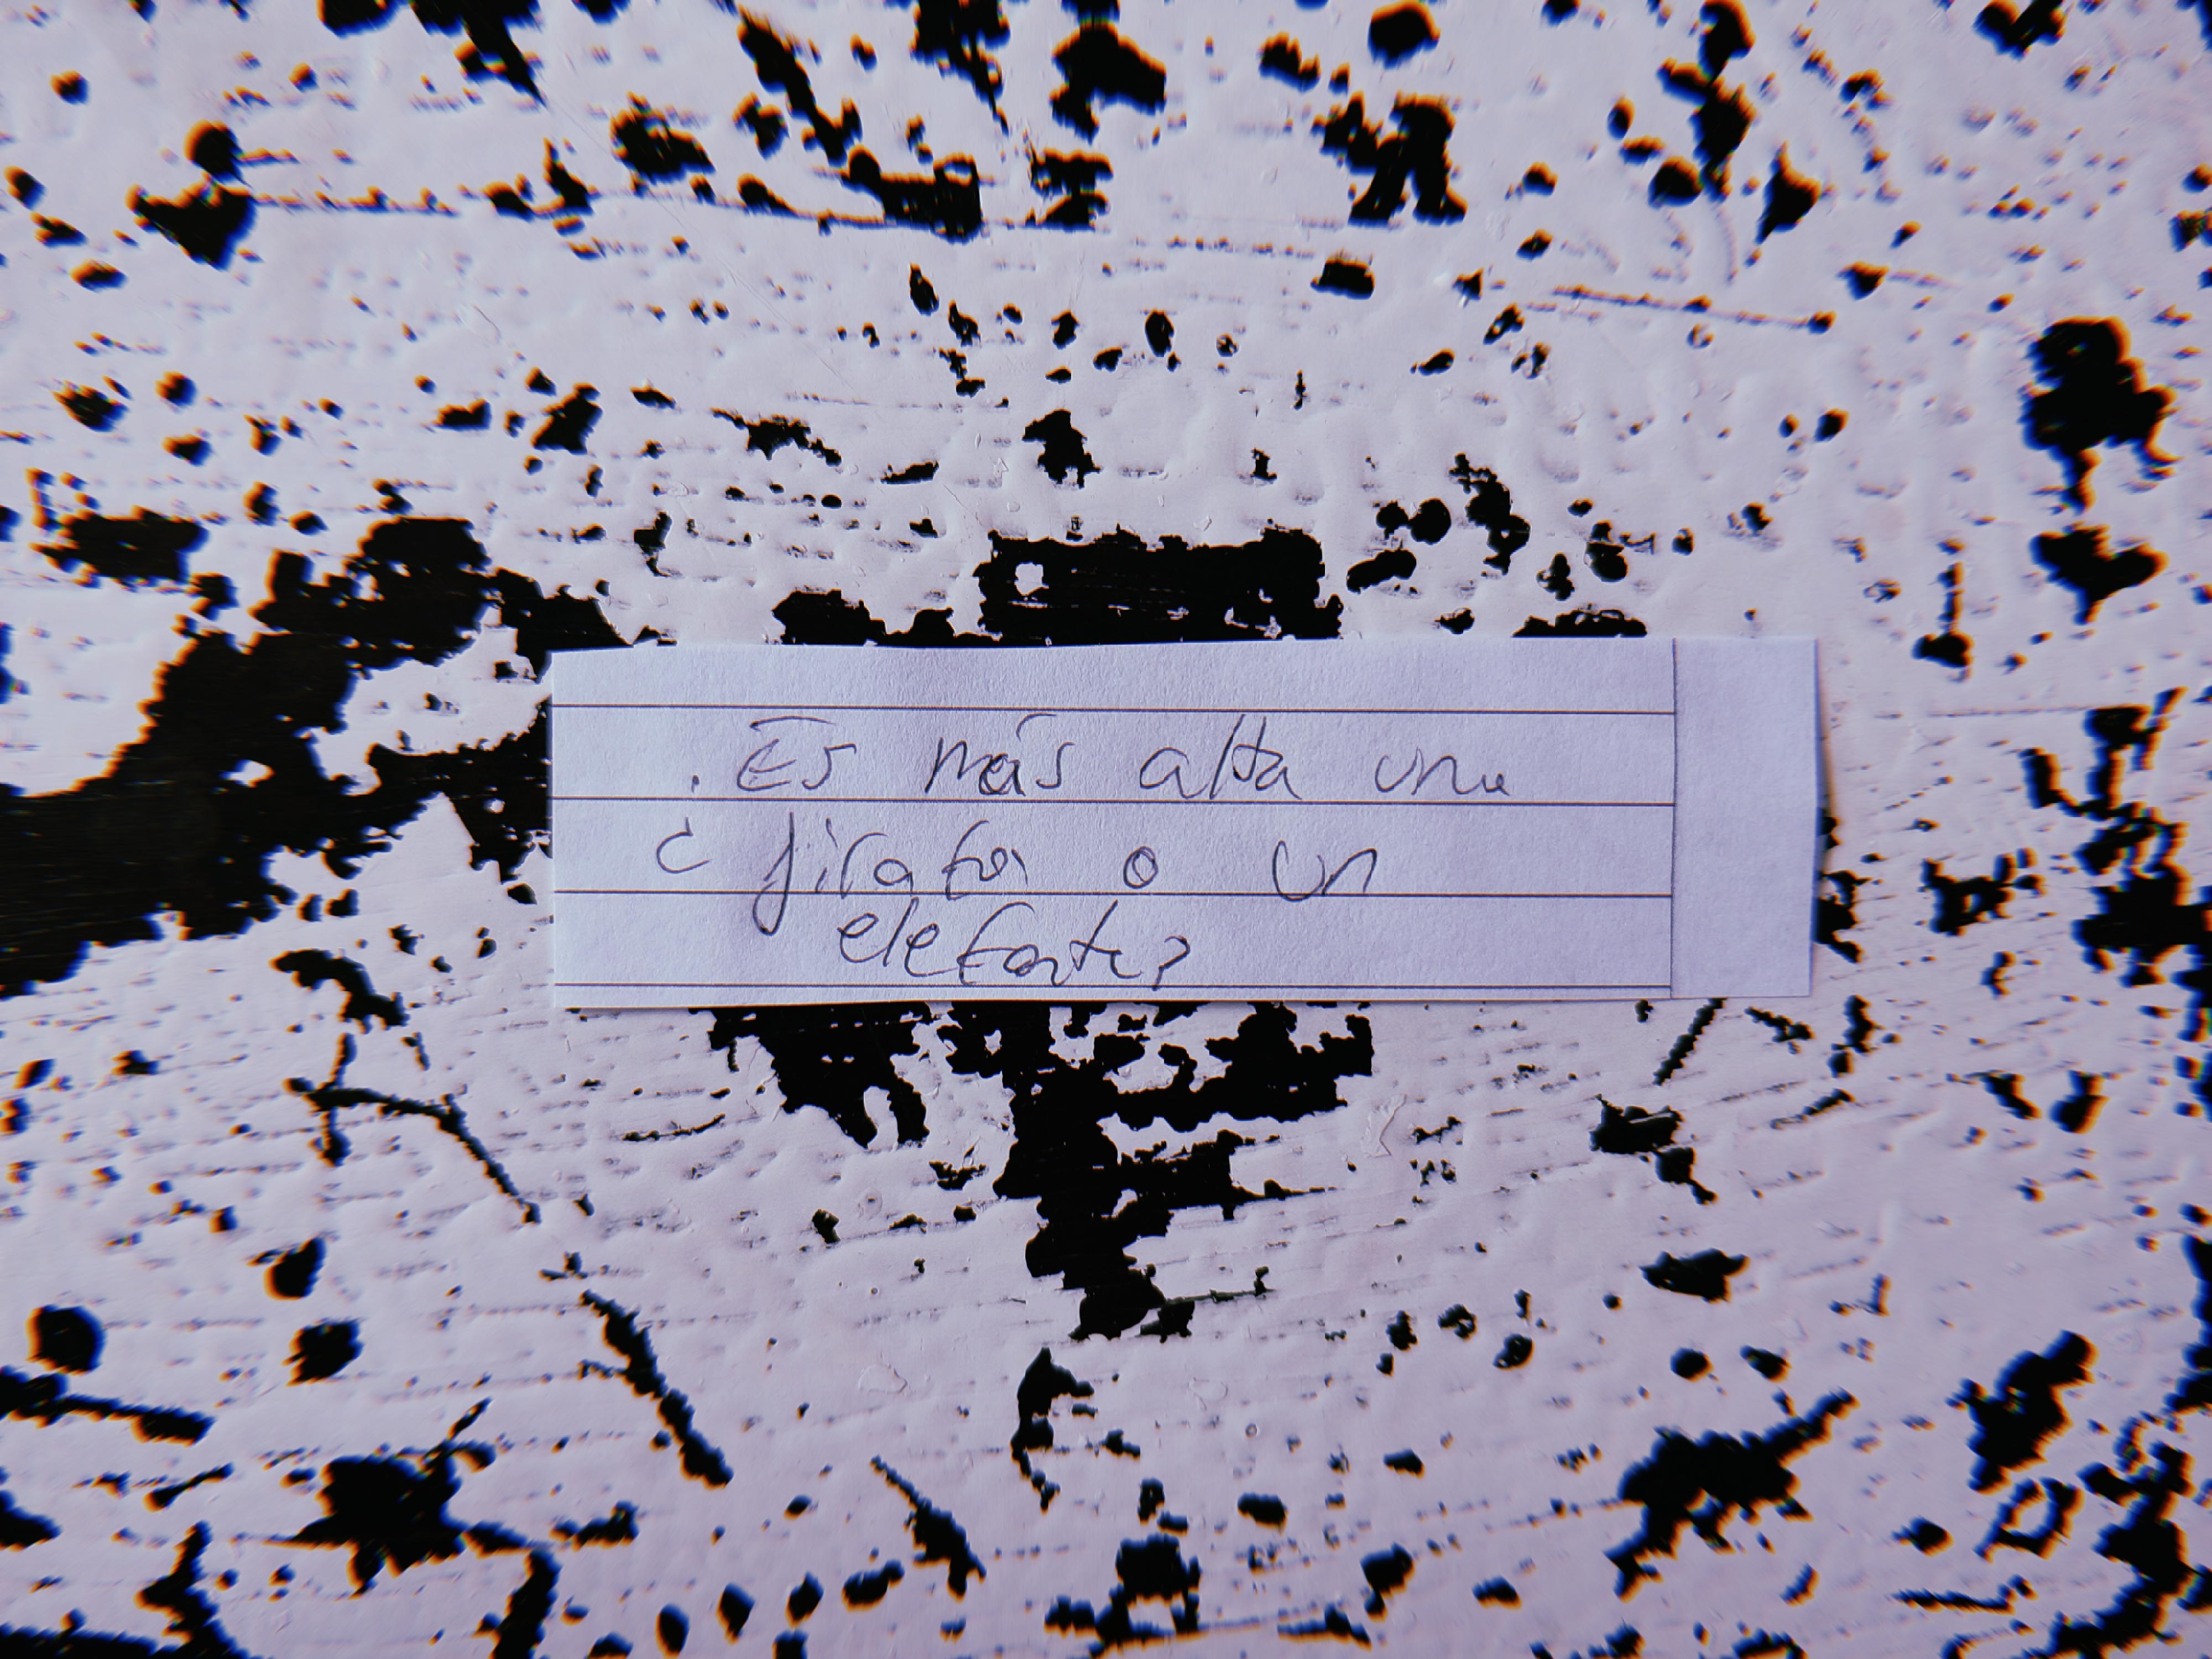 ¿Es más alta una
jirafa o un
elefante?